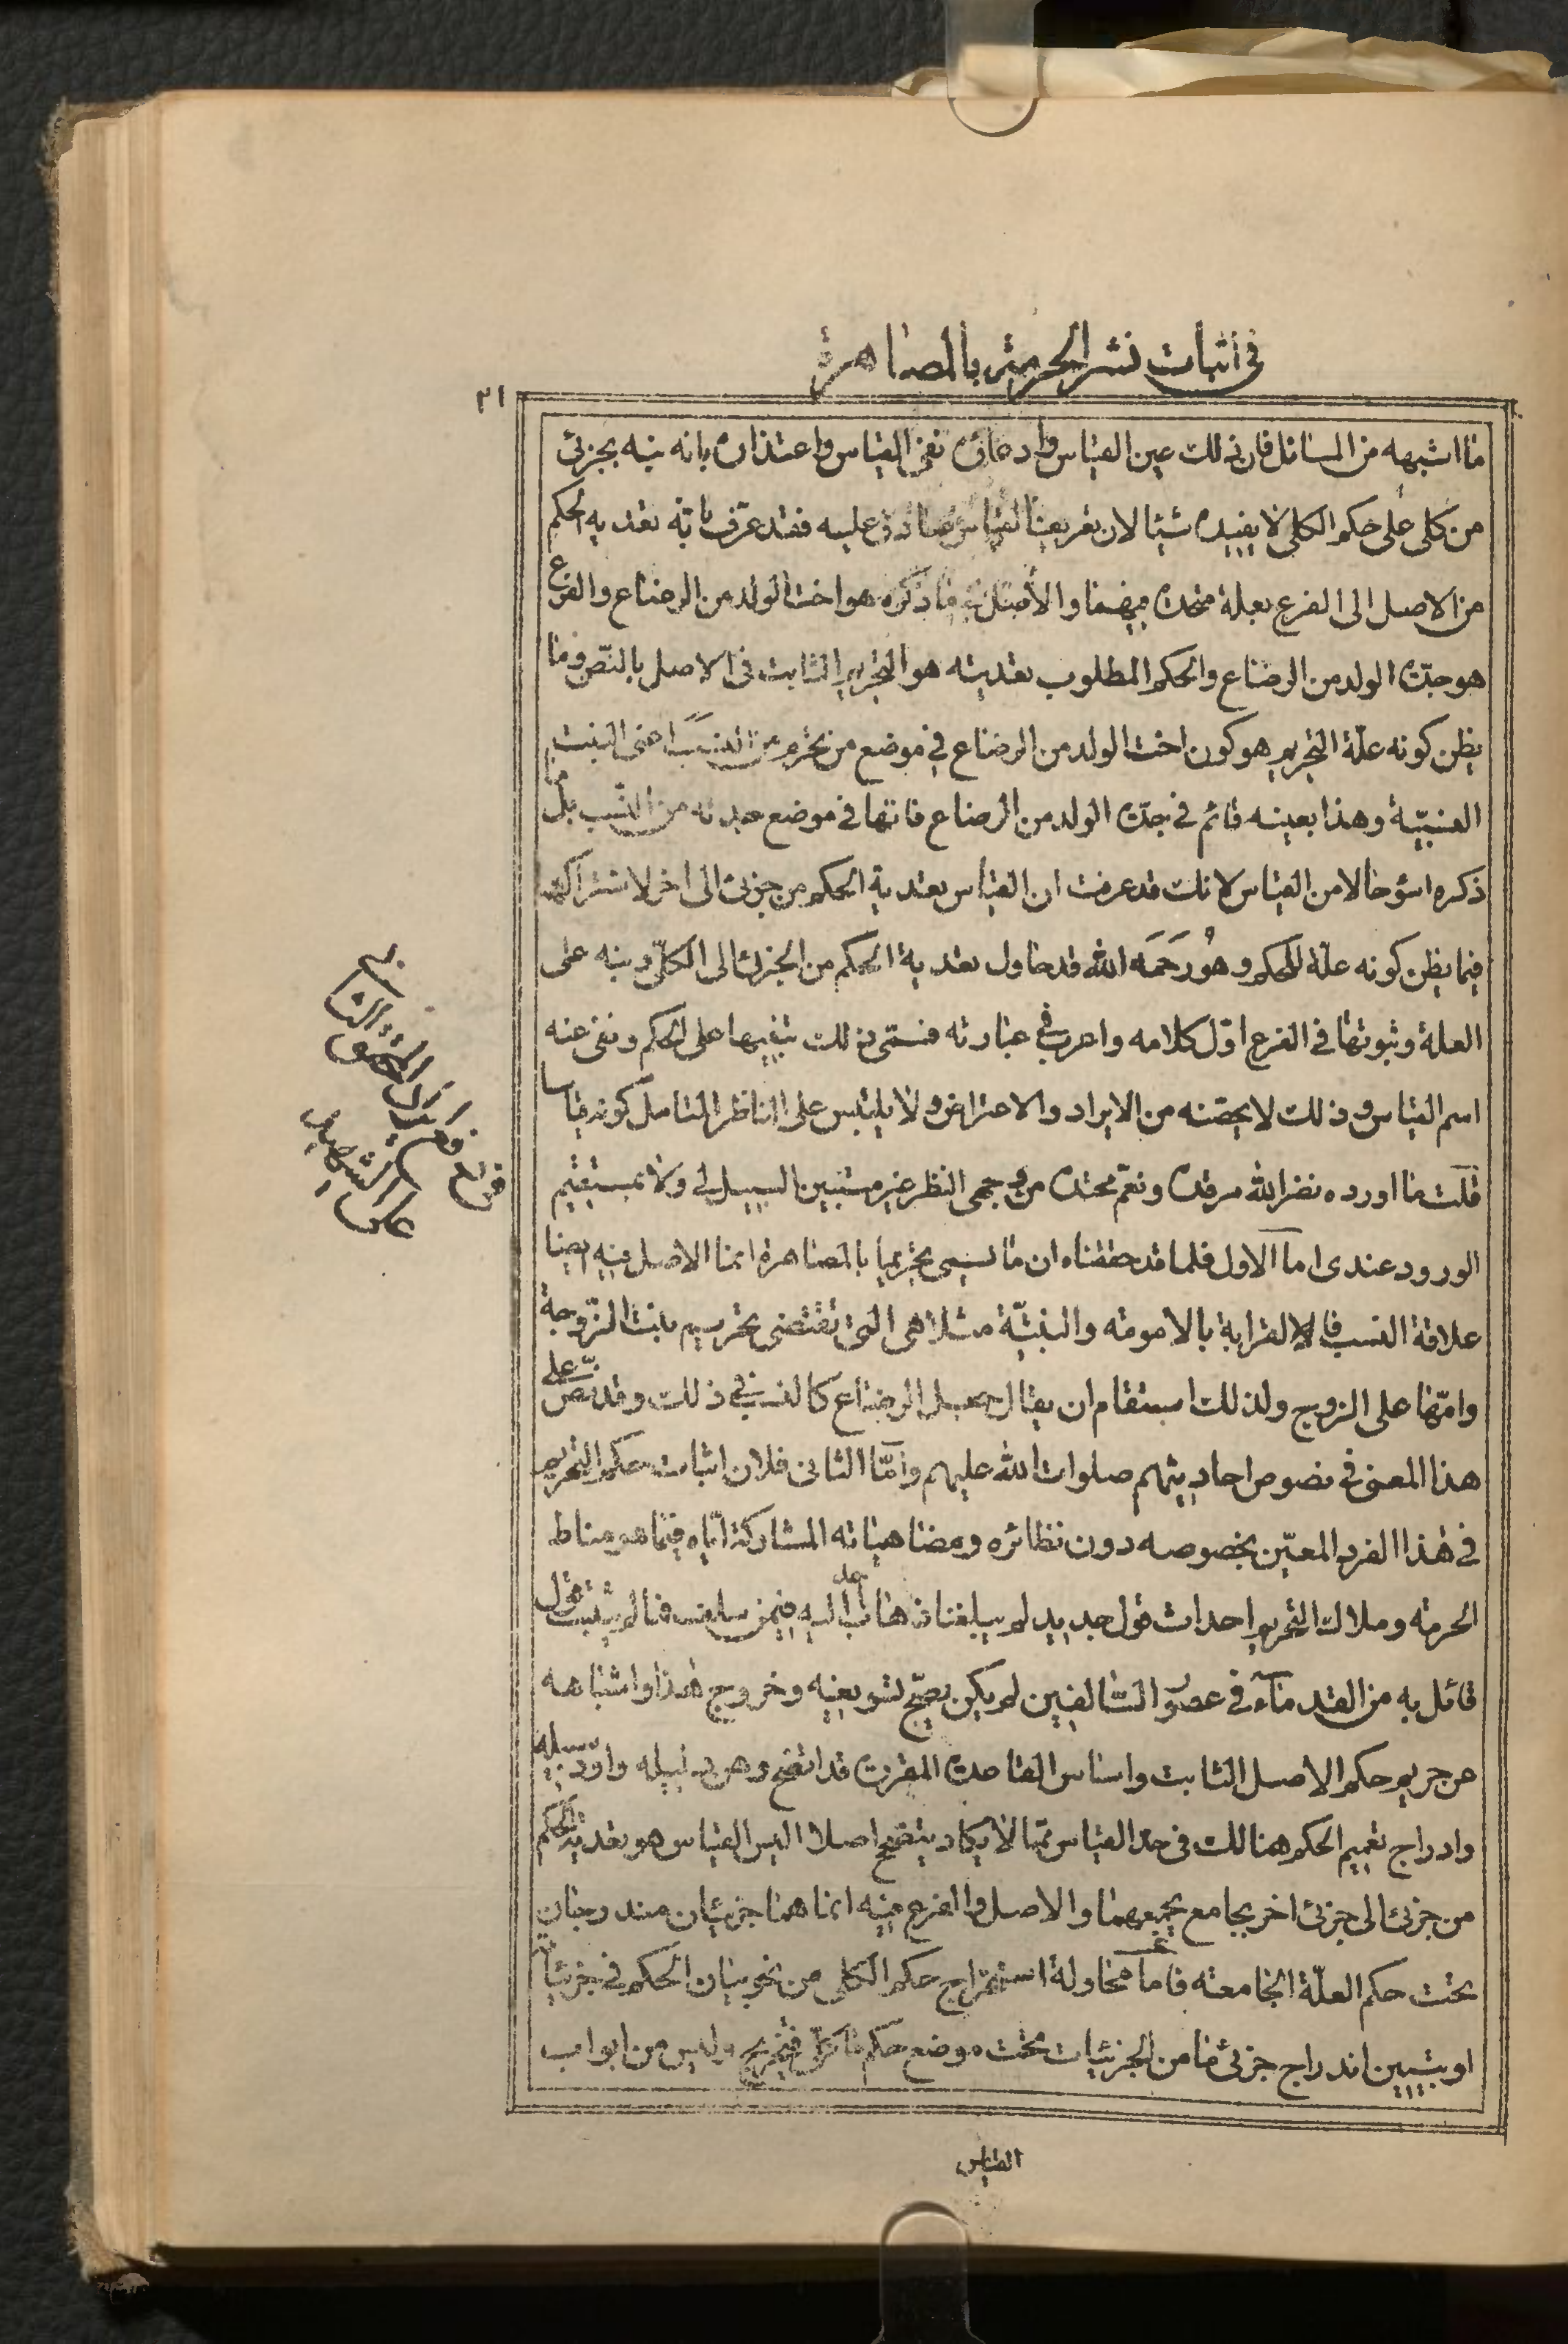 في اثبات نشر الحرمة بالمصاهرة
٢١
ما اشبهه من المسائل فان ذلك عين القياس وادعائه نفى القياس واعتذاره بانه نبه بجزئى
من كلى على حكم الكلى لا يفيده شيئا لان تعريف القياس صادق عليه فقد عرف بانه تعديه الحكم
من الاصل الى الفرع بعلة متحدة فيهما والاصل فيما ذكره هو اخت الولد من الرضاع والفرع
هو جدة الولد من الرضاع والحكم المطلوب تعديته هو التحريم الثابت فى الاصل بالنص وما
يظن كونه علة التحريم هو كون اخت الولد من الرضاع في موضع من يحرم من النسب اعنى البنت
النسبية وهذا بعينه قائم في جدة الولد من الرضاع فانها في موضع جدته من النسب بل ما
ذكره اسوء حالا من القياس لانك قد عرفت ان القياس تعدية الحكم من جزئى الى اخر لاشتراكهما
فيما يظن كونه علة للحكم وهو رحمه الله قد حاول تعدية الحكم من الجزئى الى الكلى ونبه على
العلة وثبوتها في الفرع اول كلامه واعرب في عبارته فسمى ذلك تنبيها على الحكم ونفى عنه
اسم القياس وذلك لا يحصنه من الايراد والاعتراض ولا يلتبس على الناظر المتامل كونه قياسا
قلت ما اورده نضر الله مرقده ونعم محتده من وجهى النظر غير مستبين السبيل لى ولا بمستقيم
الورود عندى اما الاول فلما قد حققناه ان ما يسمى تحريما بالمصاهرة انما الاصل فيه ايضا
علاقة النسب فالقرابة بالامومة والبنتية مثلا هى التى تقتضى تحريم بنت الزوجة
وامها على الزوج ولذلك استقام ان يقال جعل الرضاع كالنسب في ذلك وقد نص على
هذا المعنى في نصوص احاديثهم صلوات الله عليهم واما الثانى فلان اثبات حكم التحريم
في هذا الفرد المعين بخصوصه دون نظائره ومضاهياته المشاركة اياه فيما هو مناط
الحرمة وملاك التحريم احداث قول جديد لم يبلغنا ذهاب احد اليه فيمن سلف فما لم يثبت قول
قائل به من القدماء في عصر السالفين لم يكن يصح تسويغيه وخروج هذا واشباهه
عن حريم حكم الاصل الثابت واساس القاعدة المقررة قد اتضح وهن دليله واود سبيله
وادراج تعميم الحكم هنالك فى حد القياس مما لا يكاد يتصحح اصلا اليس القياس هو تعدية الحكم
من جزئى الى جزئى اخر بجامع يجمعهما والاصل والفرع فيه انما هما جزئيان مندرجان
تحت حكم العلة الجامعة فاما محاولة استخراج حكم الكلى من نحو بيان الحكم في جزئياته
او تبيين اندراج جزئى ما من الجزئيات تحت موضع حكم ما كلى فتخريج وليس من ابواب
القياس